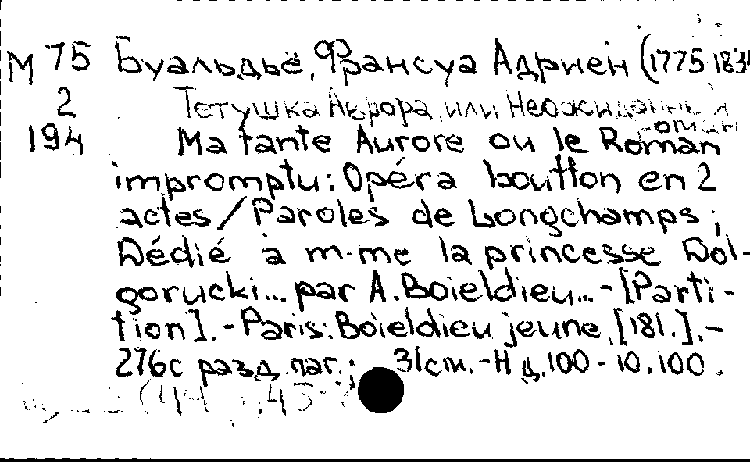 М 75 Буальдьё, Франсуа Адриен (1775-1834
2 Тетушка Аврора, или Неожиданный
роман
194 Ma tante Aurore ou le Roman
impromptu: Opéra bouffon en 2
actes / Paroles de Longchamps;
Dédié à m-me la princesse Dol-
gorucki... par A. Boieldieu... - [Parti-
tion]. - Paris: Boieldieu jeune, [181.]. -
276с разд. паг.; 31см. - Н.д. 100 - 10.100.